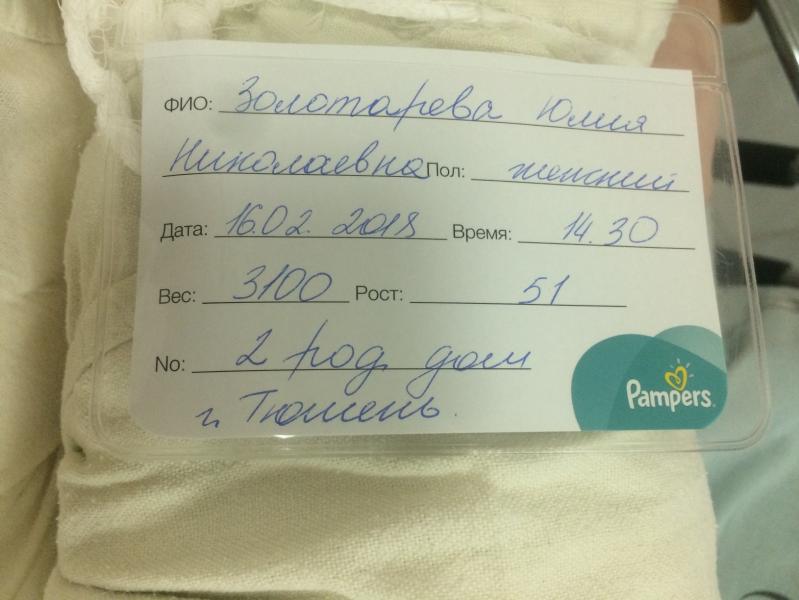 ФИО: Золотарева Юлия
Николаевна Пол: женский
Дата: 16.02.2018 Время: 14.30
Вес: 3100 Рост: 51
No: 2 род. дом
г. Тюмень.
Pampers